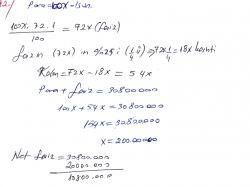 Para = 100x - lsun.
100x.72.1 / 100 = 72x (faiz)
faizin (72x) in %25 i (1/4 ü) = 72x.1/4 = 18x kesinti
Kalan = 72x - 18x = 54x
Para + faiz = 30800000
100x + 54x = 30800000
154x = 30800000
x = 200.000
Net faiz = 30800.000
20000.000
10800.000